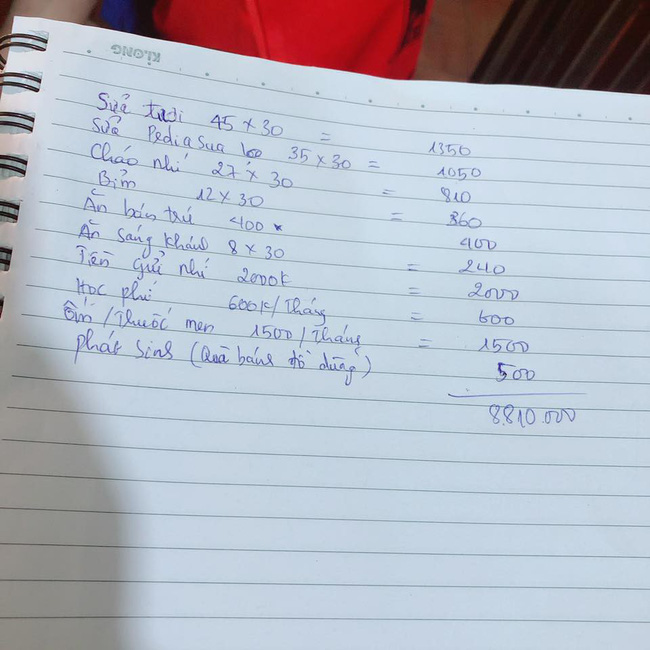 KLONG
Sữa tươi 45 x 30 = 1350
Sữa Pediasua 35 x 30 = 1050
Cháo nhí 27 x 30 = 810
Bỉm 12 x 30 = 360
Ăn bán trú 400 400
Ăn sáng 8 x 30 = 240
Tiền gửi nhí 2000k = 2000
Học phí 600k/tháng = 600
Ốm/thuốc men 1500/tháng = 1500
phát sinh (Quà bánh đồ dùng) 500
8.810.000